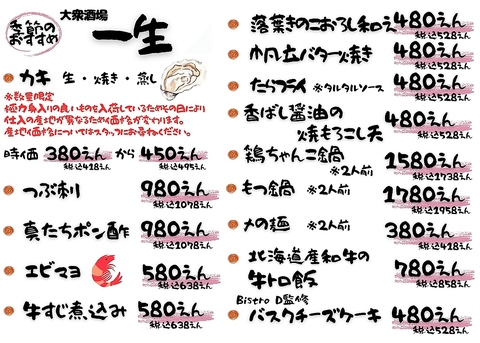 季節の
おすすめ
大衆酒場
一生
カキ 生・焼き・蒸し
※数量限定
極力身入りの良いものを入荷しているためその日により
仕入の産地が異なるため価格が変わります。
産地・価格についてはスタッフにお尋ねください。
時価 380えん から 450えん
税込418えん 税込495えん
つぶ刺 980えん
税込1078えん
真たちポン酢 980えん
税込1078えん
エビマヨ 580えん
税込638えん
牛すじ煮込み 580えん
税込638えん
落葉きのこおろし和え 480えん
税込528えん
帆立バター焼き 480えん
税込528えん
たらフライ ※タルタルソース 480えん
税込528えん
香ばし醤油の
焼もろこし天 480えん
税込528えん
鶏ちゃんこ鍋 ※2人前 1580えん
税込1738えん
もつ鍋 ※2人前 1780えん
税込1958えん
〆の麺 ※2人前 380えん
税込418えん
北海道産和牛の
牛トロ飯 780えん
税込858えん
Bistro D監修
バスクチーズケーキ 480えん
税込528えん